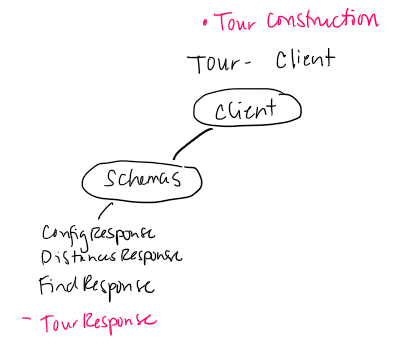 • Tour Construction
Tour - Client
Client
Schemas
ConfigResponse
DistancesResponse
FindResponse
- TourResponse